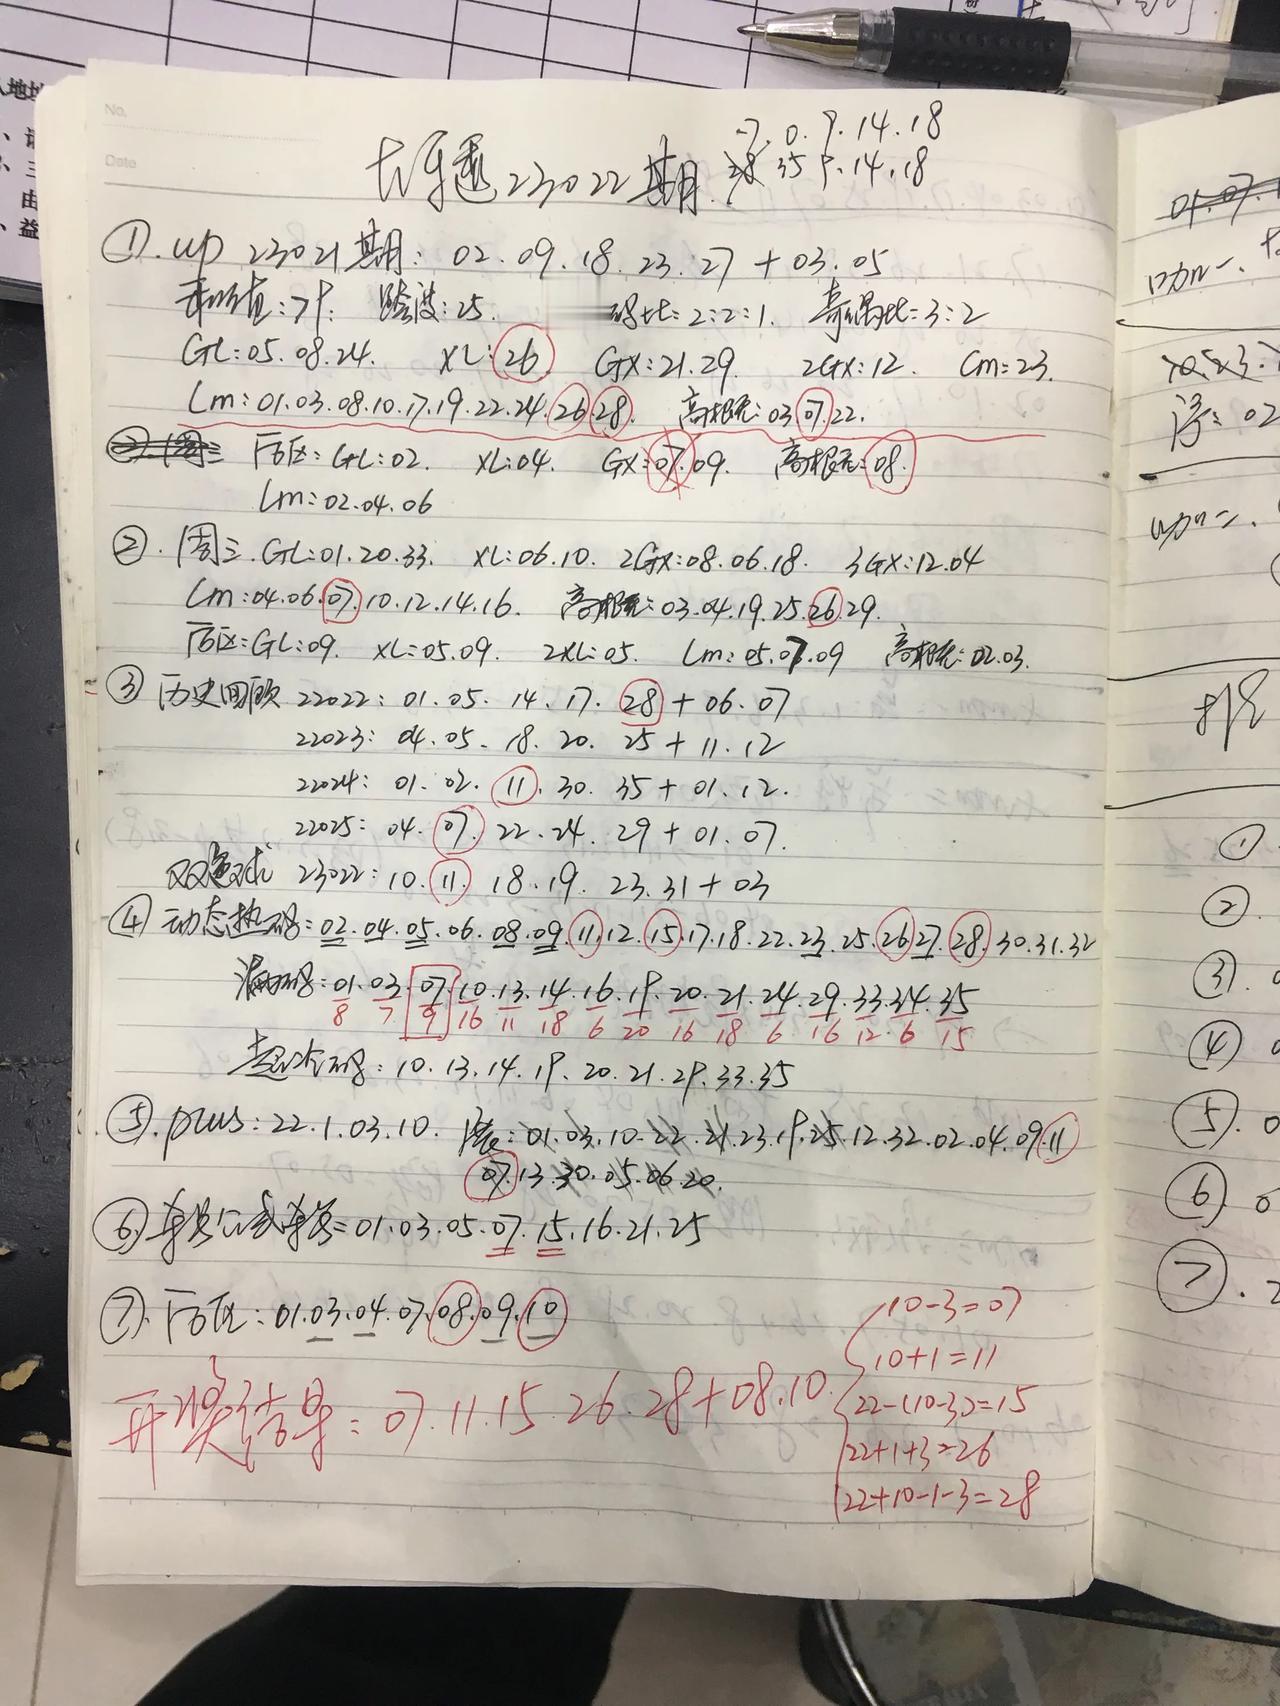 No.
Date
7.0.9.14.18
大乐透23022期 28 35 9.14.18
①.up 23021期: 02.09.18.23.27+03.05
和值:79. 跨度:25. 码比:2:2:1. 奇偶比:3:2
GL:05.08.24. XL:26 GX:21.29. 2GX:12. Cm:23.
Lm:01.03.08.10.17.19.22.24.26.28. 高概率:03.07.22.
后区:GL:02. XL:04. GX:07.09. 高概率:08.
Lm:02.04.06
②.周三.GL:01.20.33. XL:06.10. 2GX:08.06.18. 3GX:12.04
Lm:04.06.07.10.12.14.16. 高概率:03.04.19.25.26.29.
后区:GL:09. XL:05.09. 2XL:05. Lm:05.07.09 高概率:02.03.
③ 历史回顾 22022: 01.05.14.17.28+06.07
22023: 04.05.18.20.25+11.12
22024: 01.02.11.30.35+01.12.
22025: 04.07.22.24.29+01.07.
双色球 23022:10.11.18.19.23.31+03
④ 动态热码:02.04.05.06.08.09.11.12.15.17.18.22.23.25.26.27.28.30.31.32
:01.03.07.10.13.14.16.19.20.21.24.29.33.34.35
8 7 9 16 11 18 6 20 16 18 6 16 12 6 15
超冷码:10.13.14.19.20.21.29.33.35
⑤.plus:22.1.03.10. :01.03.10.22.21.23.19.25.12.32.02.04.09.11
07.13.30.05.06.20.
⑥ =01.03.05.07.15.16.21.25
⑦.后区:01.03.04.07.08.09.10
10-3=07
10+1=11
开奖结果:07.11.15.26.28+08.10.
22-(10-3)=15
22+1+3=26
22+10-1-3=28
①
②.
③.
④
⑤.
⑥.
⑦.